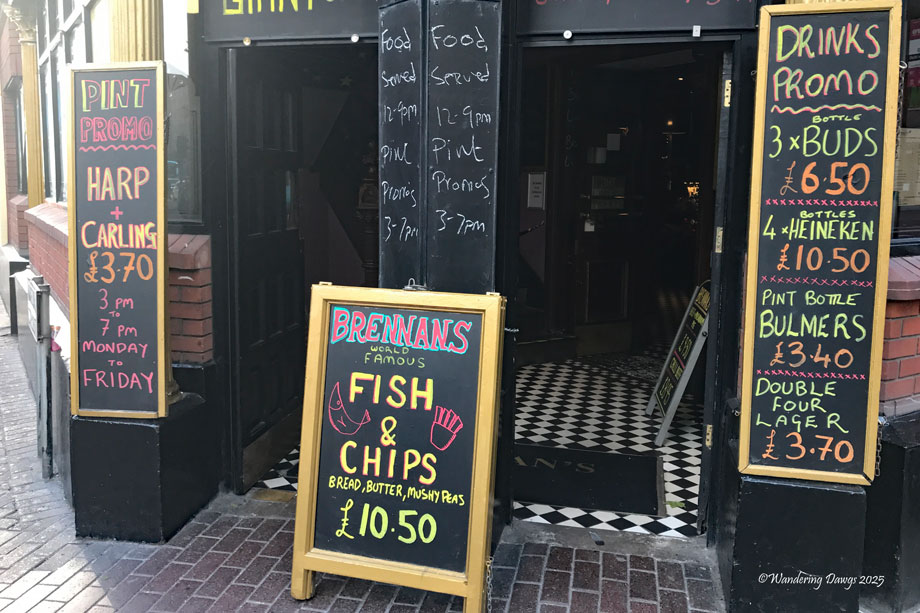 GIANT
PINT
PROMO
HARP
+
CARLING
£3.70
3 PM
TO
7 PM
MONDAY
TO
FRIDAY
Food
Served
12-9pm
Pint
Promos
3-7pm
Food
Served
12-9pm
Pint
Promos
3-7pm
BRENNANS
WORLD
FAMOUS
FISH
&
CHIPS
BREAD, BUTTER, MUSHY PEAS
£10.50
AN'S
DRINKS
PROMO
BOTTLE
3 x BUDS
£6.50
BOTTLES
4 x HEINEKEN
£10.50
PINT BOTTLE
BULMERS
£3.40
DOUBLE
FOUR
LAGER
£3.70
©Wandering Dawgs 2025